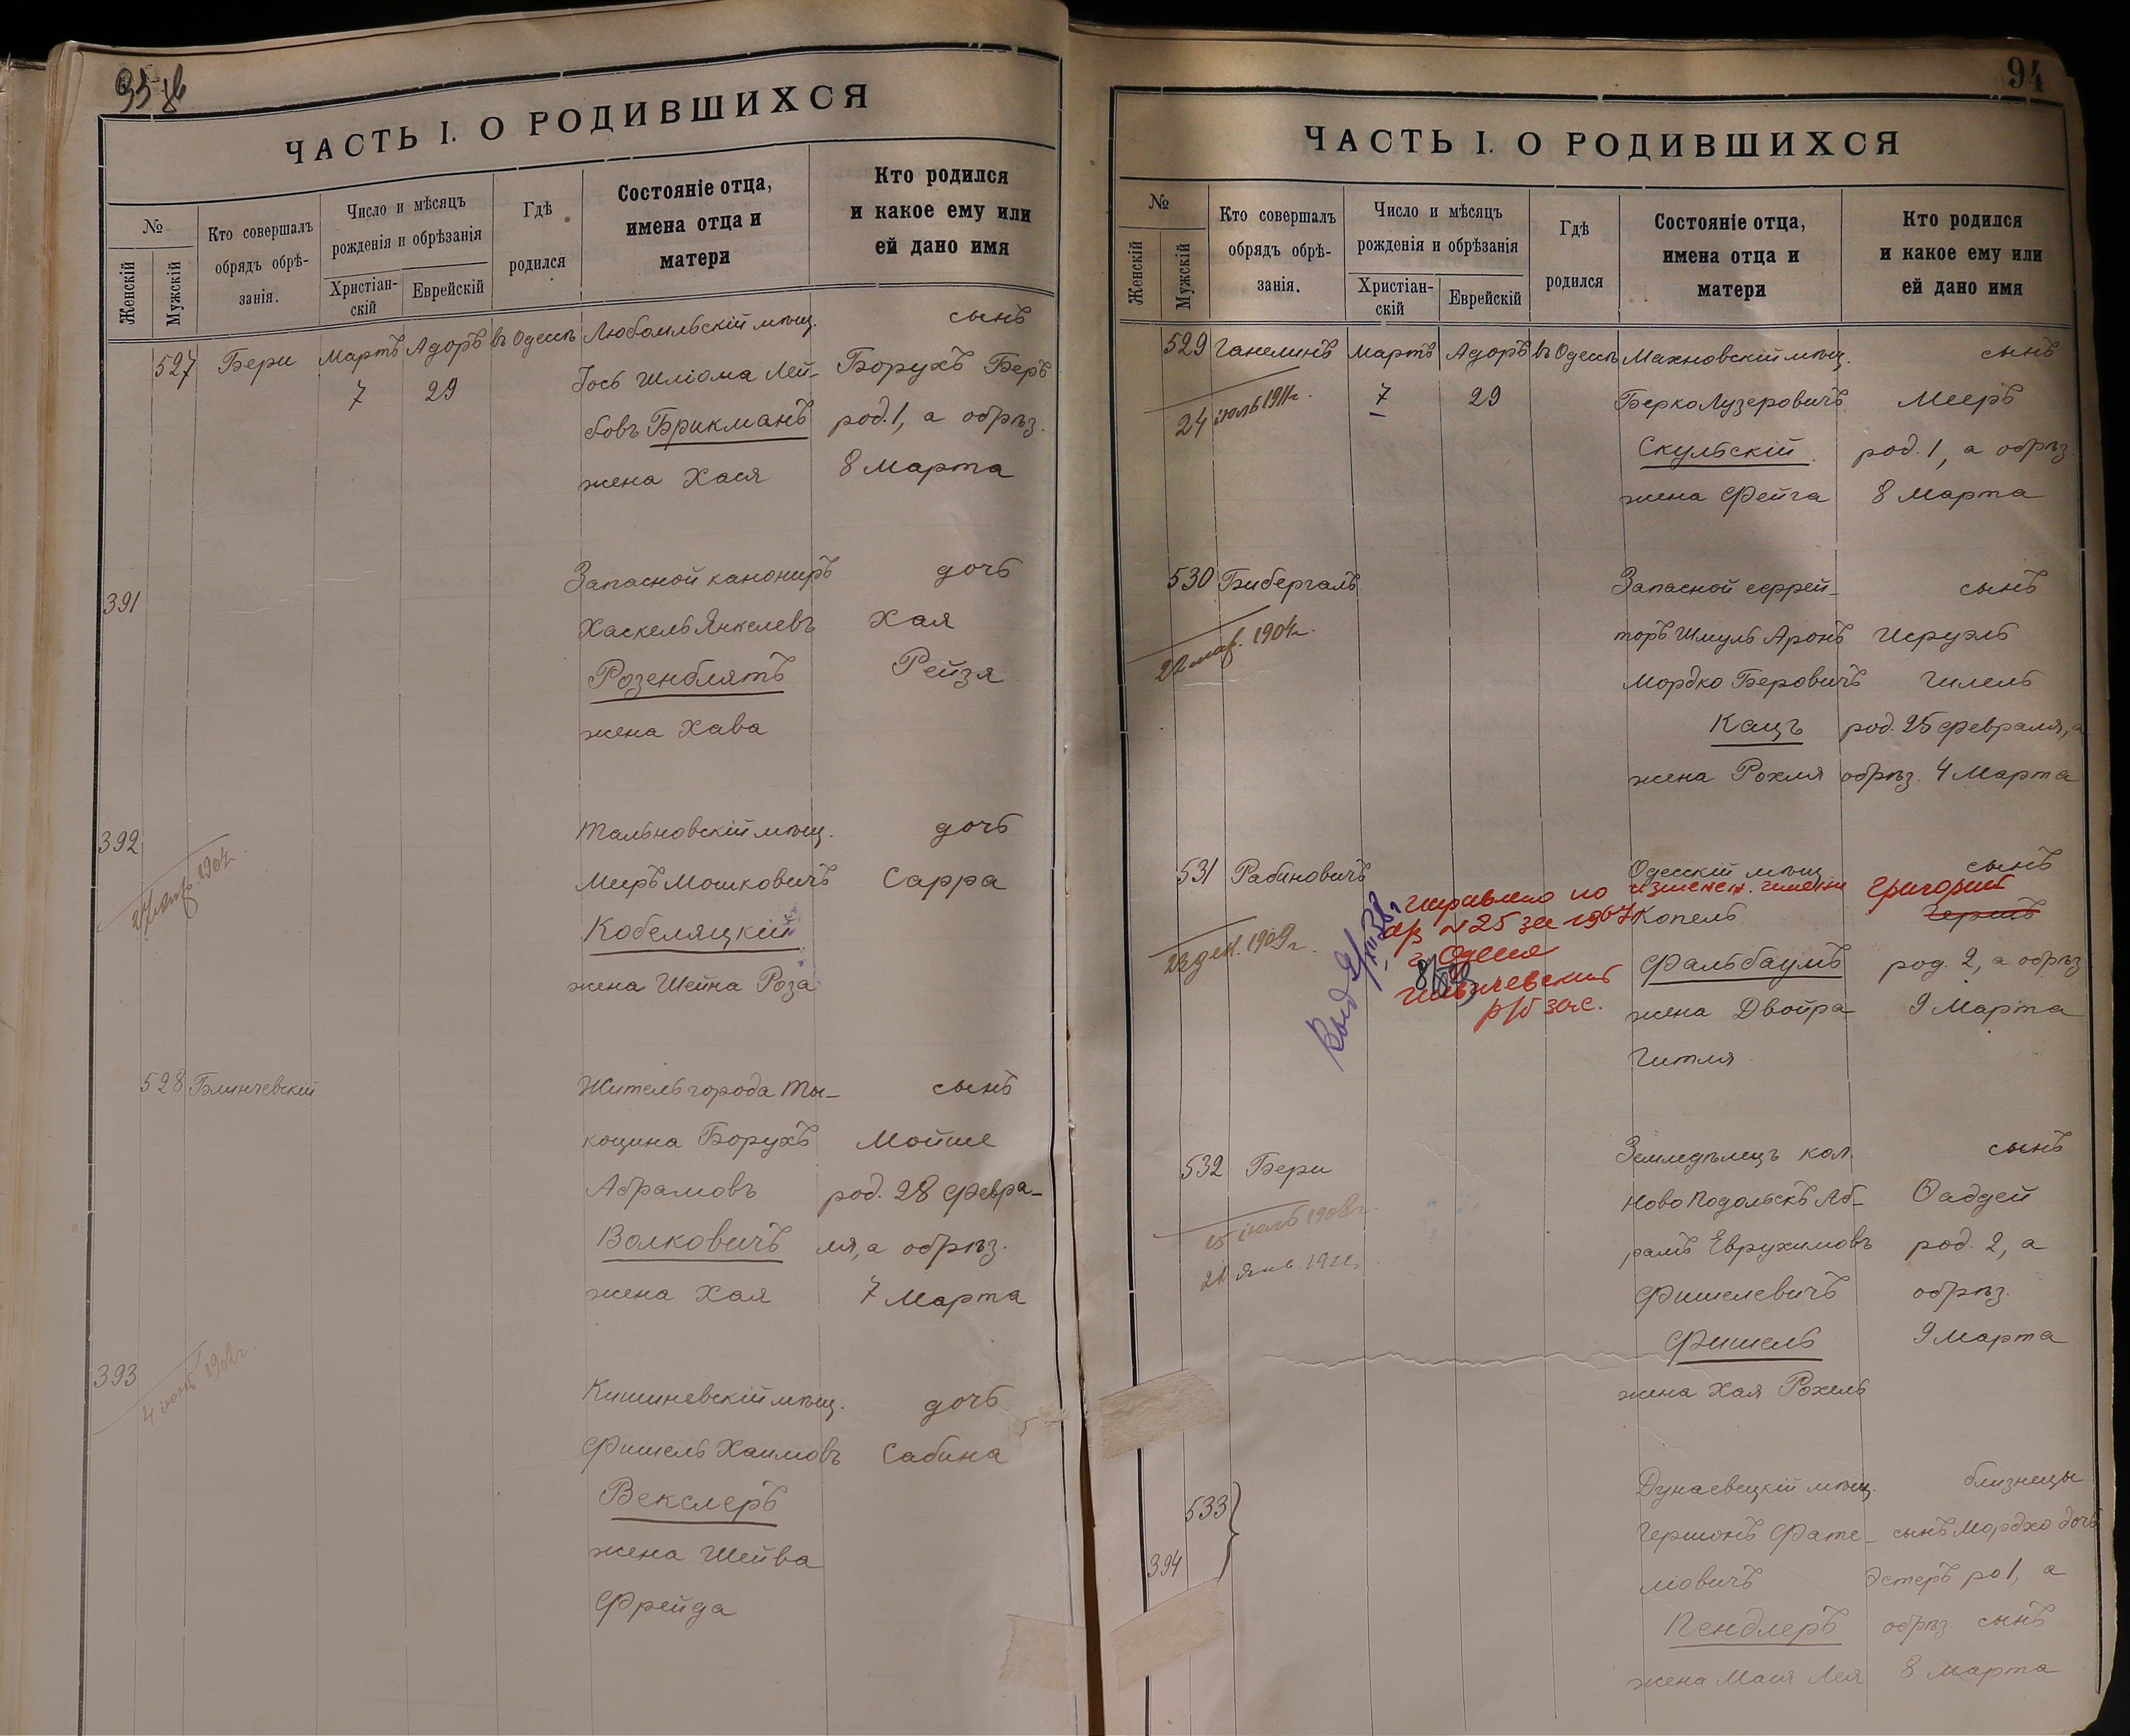 ЧАСТЬ I. О РОДИВШИХСЯ
№
Женскій
Мужскій
Кто совершалъ
обрядъ обрѣ-
занія.
Число и мѣсяцъ
рожденія и обрѣзанія
Христіан-
скій
Еврейскій
Гдѣ
родился
Состояніе отца,
имена отца и
матери
Кто родился
и какое ему или
ей дано имя
527 Бери Мартъ Адоръ въ Одессѣ Любомльскій мѣщ. сынъ
7 29 Іось Шліома Лей- Борухъ Беръ
бовъ Брикманъ род. 1, а обрѣз.
жена Хася 8 Марта
391 Запасной канониръ дочь
Хаскель Янкелевъ Хая
Розенблятъ Рейзя
жена Хава
392 Тальновскій мѣщ. дочь
1904г.
Меиръ Мошковичъ Сарра
Кобеляцкій
жена Шейна Роза
528 Блинчевскій Житель города Ты- сынъ
коцина Борухъ Мойше
Абрамовъ род. 28 Февра-
Волковичъ ля, а обрѣз.
жена Хая 7 Марта
393 Кишиневскій мѣщ. дочь
Фишель Хаимовъ Сабина
Векслеръ
жена Шейва
Фрейда
94
ЧАСТЬ I. О РОДИВШИХСЯ
№
Женскій
Мужскій
Кто совершалъ
обрядъ обрѣ-
занія.
Число и мѣсяцъ
рожденія и обрѣзанія
Христіан-
скій
Еврейскій
Гдѣ
родился
Состояніе отца,
имена отца и
матери
Кто родился
и какое ему или
ей дано имя
529 Ганелинъ Мартъ Адоръ въ Одессѣ Махновскій мѣщ. сынъ
24 іюль 1911г. 7 29 Берко Лузеровичъ Мееръ
Скульскій род. 1, а обрѣз.
жена Фейга 8 Марта
530 Бибергалъ Запасной ефрей- сынъ
22 мар. 1904г. торъ Шмуль Аронъ Исруэль
Мордко Беровичъ Гилель
Кацъ род. 25 Февраля, а
жена Рохля обрѣз. 4 Марта
531 Рабиновичъ Одесскій мѣщ. сынъ
исправлено по изменен. имени Григорий
а/з №25 за 1967 Копель Гершъ
23 дек. 1909г. г. Одесса Фальбаумъ род. 2, а обрѣз.
Ильичевский
р/б загс. жена Двойра 9 Марта
Гитля
532 Бери Земледѣлецъ кол. сынъ
Новоподольскъ Аб- Фаддей
15 іюль 1908г. рамъ Еврухимовъ род. 2, а
21 янв. 1911г. Фишелевичъ обрѣз.
Фишель 9 Марта
жена Хая Рохель
533 Дунаевецкій мѣщ. близнецы
Гершонъ Фате- сынъ Мордхо дочь
394 ліовичъ Эстеръ ро 1, а
Пендлеръ обрѣз. сынъ
жена Мася Лея 8 Марта